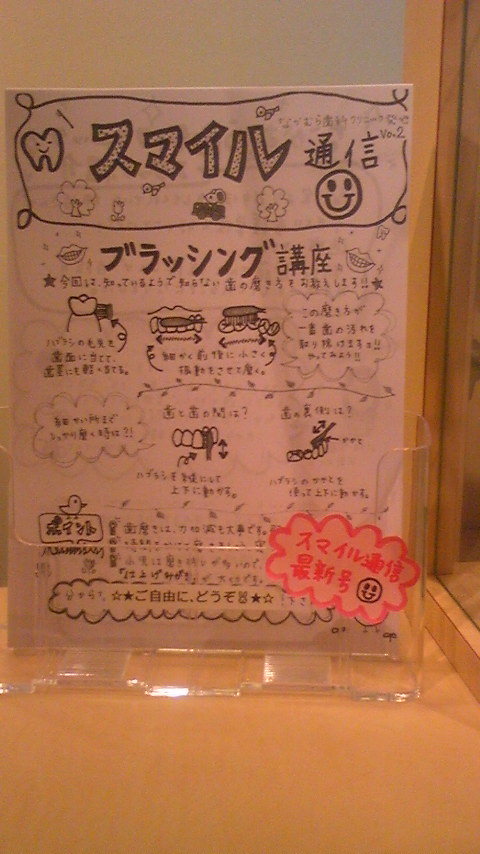 スマイル通信
Vo.2
ブラッシング講座
★今回は、知っているようで知らない歯の磨き方をお教えします!!★
ハブラシの毛先を
歯面に当て、
歯茎にも軽く当てる。
細かく前後に小さく
振動をさせて磨く。
この磨き方が
一番歯の汚れを
取り除けます!!
やってみよう!!
細かい所まで
しっかり磨く時は?!
歯と歯の間は?
ハブラシを縦にして
上下に動かす。
歯の裏側は?
かかと
ハブラシのかかとを
使って上下に動かす。
ポイント
歯磨きは、力加減も大事です。
☆★ご自由に、どうぞ
★☆
スマイル通信
最新号